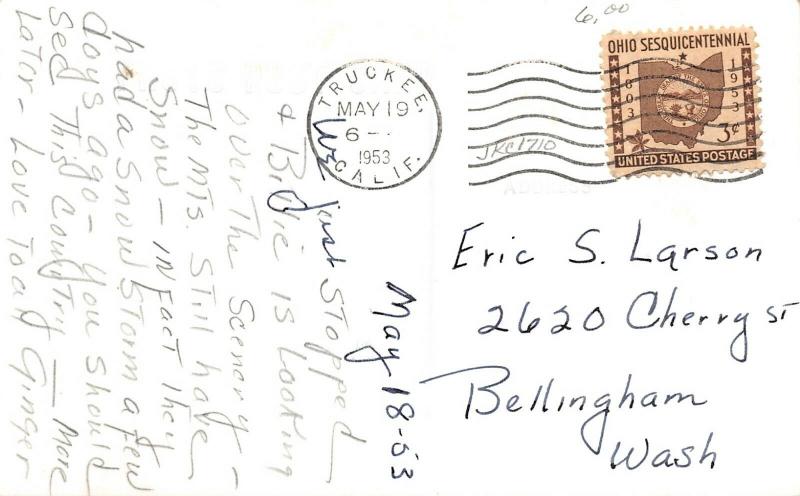 6.00
OHIO SESQUICENTENNIAL
1803
1953
3¢
UNITED STATES POSTAGE
TRUCKEE,
MAY 19
6 -
1953
CALIF.
JKC1710
ADDRESS
Eric S. Larson
2620 Cherry St
Bellingham
Wash
May 18-53
We just stopped
& Billie is Looking
over The Scenery -
The Mts. Still have
Snow - in Fact They
had a Snow Storm a Few
days ago - you should
See This Country - More
Later - Love Ginger